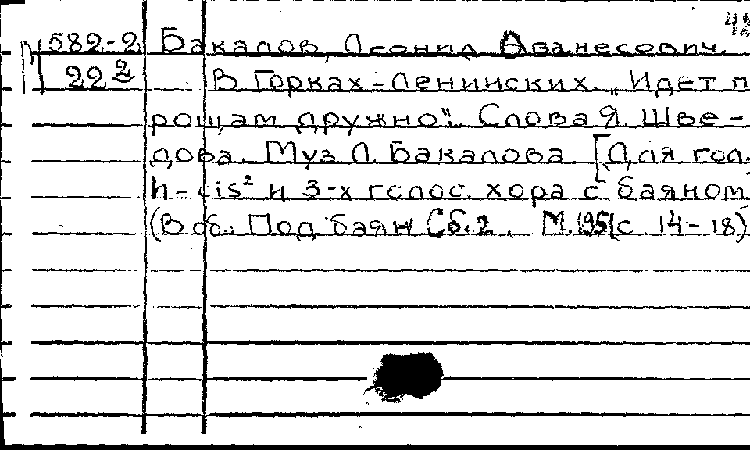 1582-2 Бакалов, Леонид Ованесович.
22² В Горках-Ленинских. „Идет п
рощам дружно". Слова Я. Шве-
дова. Муз Л. Бакалова. [Для гол.
h-cis² и 3-х голос. хора с баяном
(В сб.: Под баян Сб. 2. М. 1951 с 14-18)